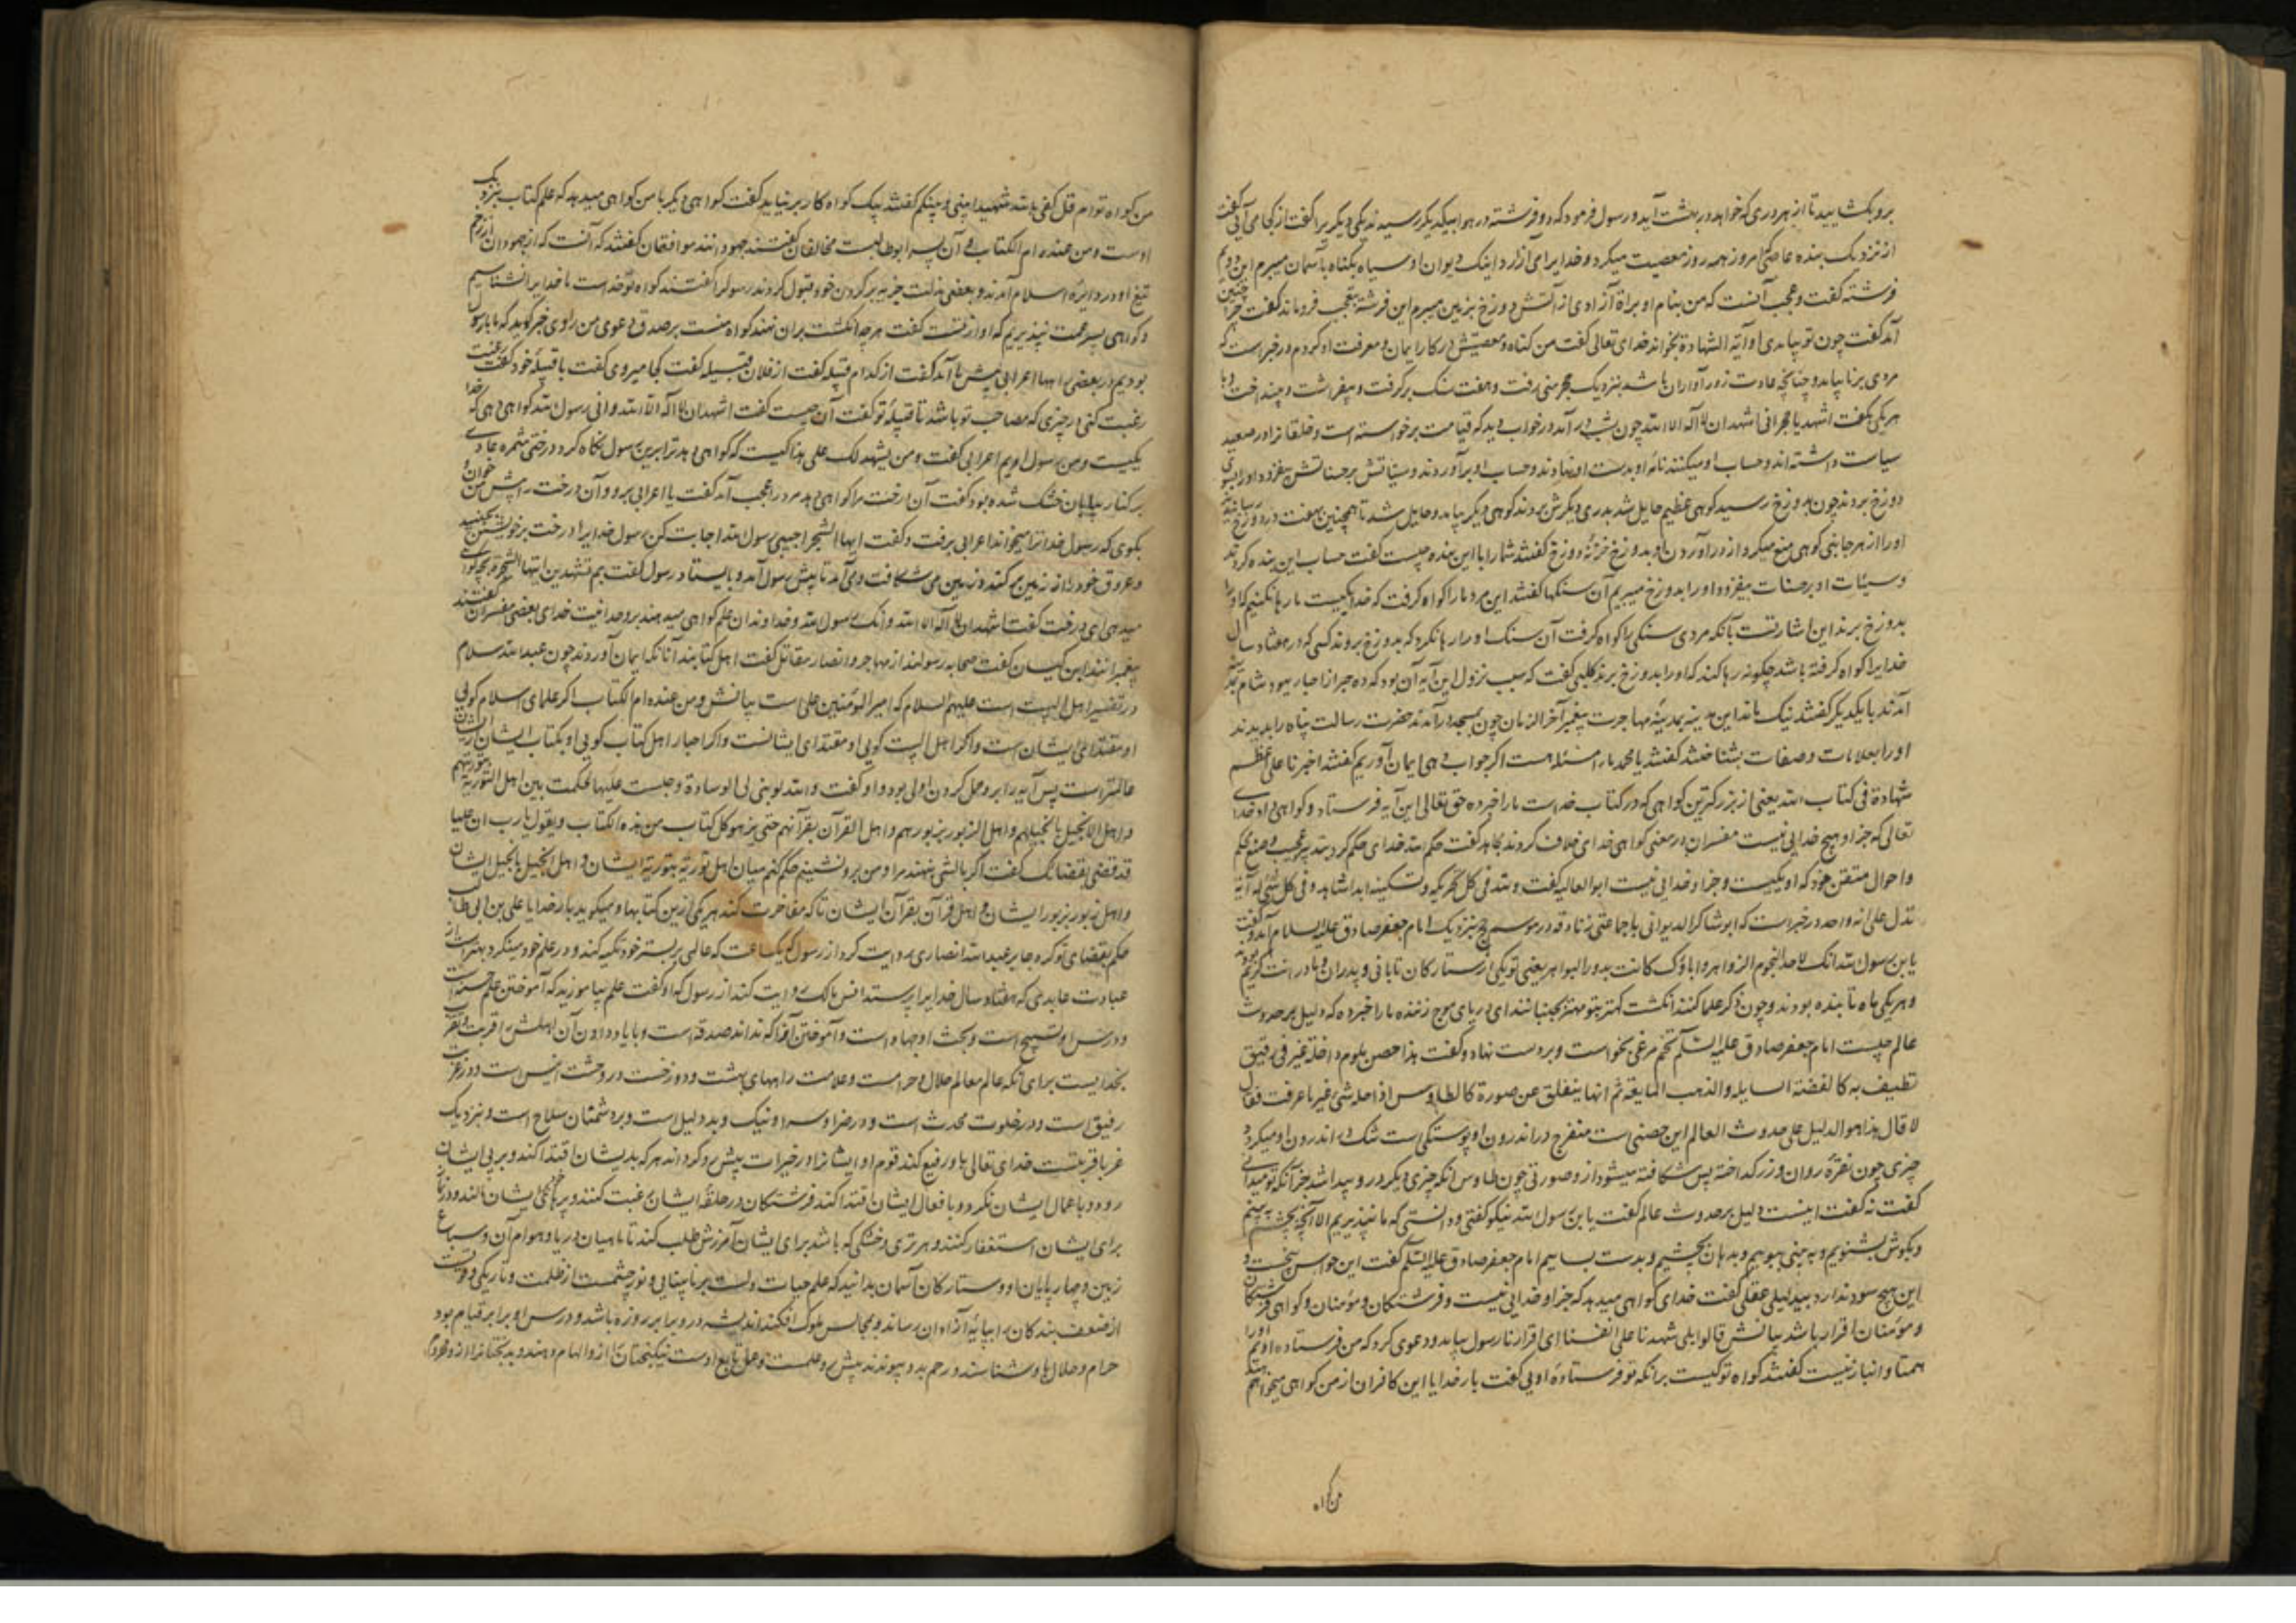 برو بکشایید تا از هر دری که خواهد در بهشت آید و رسول فرمود که دو فرشته در هوا بیکدیگر رسیدند یکی دیگر یرا کفت از کجا می آیی کفت
از نزدیک بنده عاصی امروز همه روز معصیت میکرد و خدایرا می آزارد اینک دیوان او سیاه بکناه بآسمان میبرم این دویم
فرشته کفت وعجب آنست که من بنام او براة آزادی از آتش دوزخ بزمین میبرم این فرشته بتعجب فروماند کفت چرا چنین
آمد کفت چون تو بیامدی او آیة الشهادة بخواند خدای تعالی کفت من کناه ومعصیتش در کار ایمان ومعرفت او کردم ودر خبر است که
مردی برنا بیامد و چنانچه عادت زور آوران باشد بنزدیک حجر منی رفت وهفت سنک برکرفت و بیفراشت و چند اخت وبا
هر یکی بکفت اشهد یا حجرانی اشهد ان لا اله الا الله چون شب در آمد در خواب دید که قیامت برخواسته است و خلقانرا در صعید
سیاست داشته اند وحساب او میکنند نامۀ او بدست او نهادند وحساب او برآوردند وسیاتش بر حسناتش بیفزود او را بسوی
دوزخ بردند چون بدوزخ رسید کوهی عظیم حایل شد بدری دیکرش بردند کوهی دیکر بیامد و حایل شد تا همچنین بهفت در دوزخ
او را از هر جانبی کوهی منع میکرد از در آوردن او بدوزخ خزنۀ دوزخ کفتند شما را با این بنده چیست کفت حساب این بنده کردند
وسیئات او بر حسنات بیفزود او را بدوزخ میبریم آن سنکها کفتند این مرد ما را کواه کرفت که خدا یکیست ما رها نکنیم که او را
بدوزخ برند این اشارتست بآنکه مردی سنکی را کواه کرفت آن سنک او را رها نکرد که بدوزخ بروند کسی که در هفتاد سال
خدایرا کواه کرفته باشد چکونه رها کند که او را بدوزخ برند کلبی کفت که سبب نزول این آیه آن بود که ده حبر از احبار یهود شام
آمدند با یکدیکر کفتند نیک ماند این مدینه بمدینۀ مهاجرت پیغمبر آخر الزمان چون بمسجد درآمدند حضرت رسالت پناه را بدیدند
او را بعلامات وصفات بشناختند کفتند یا محمد ما را مسئله هست اکر جواب دهی ایمان آوریم کفتند اخبرنا علی اعظم
شهادة فی کتاب الله یعنی از بزرکترین کواهی که در کتاب خداست ما را خبر ده حق تعالی این آیه فرستاد وکواهی داد خدای
تعالی که جز او هیچ خدایی نیست مفسران در معنی کواهی خدای خلاف کردند مجاهد کفت حکم الله خدای حکم کرد
واحوال متقن خود که او یکیست وجز او خدایی نیست ابوالعالیه کفت ولله فی کل تحریکه وتسکینه ابدا شاهد وفی کل شی له آیة
تدل علی انه واحد در خبر است که ابوشاکر الدیوانی با جماعتی زنادقه در موسم حج بنزدیک امام جعفر صادق علیه السلام آمد وکفت
یابن رسول الله انک لاحد النجوم الزواهر واباؤک کانت بدور البواهر یعنی تو یکی از ستارکان تابانی وپدران ومادرانت کریم بودند
وهر یکی ماه تابنده بودند و چون ذکر علما کنند انکشت کهتر بتو مهتر بجنبانند ای دریای موج زننده ما را خبر ده که دلیل بر حدوث
عالم چیست امام جعفر صادق علیه السلم تخم مرغی بخواست وبر دست نهاد وکفت هذا حصن ملوم داخله غیر فی رقیق
تطیف به کالفضة السایله والذهب المایقه ثم انها ینفلق عن صورة کالطاوس اذ دخله شی غیر ما عرفت فقال
لا قال هذا هو الدلیل علی حدوث العالم این حصنی است متفرج در اندرون او پوستکی است شک در اندرون او میکردد
چیزی چون نقرۀ روان وزر کداخته پس شکافته میشود از و صورتی چون طاوس آنکه چیزی دیکر در و پیدا شد جز آنکه تو میدانی
کفت نه کفت اینست دلیل بر حدوث عالم کفت یابن رسول الله نیکو کفتی و دانستی که ما نپذیریم الا آنچه بچشم به بینم
وبکوش بشنویم وبه بینی ببوییم وبدهان بچشیم وبدست بساییم امام جعفر صادق علیه السلم کفت این حواس پنجست و
این هیچ سود ندارد بیدلیلی عقلی کفت خدای کواهی میدهد که جز او خدایی نیست وفرشتکان ومؤمنان وکواهی فرشتکان
ومؤمنان اقرار باشد بیانش قالوا بلی شهدنا علی انفسنا ای اقرارنا رسول بیامد ودعوی کرد که من فرستاده اویم او را
همتا وانباز نیست کفتند کواه تو کیست برانکه تو فرستادۀ اویی کفت بار خدایا این کافران از من کواهی میخواهند
من کواه
من کواه توام قل کفی بالله شهیدا بینی وبینکم کفتند یک کواه کار بر نیاید کفت کواهی دیکر با من کواهی میدهد که علم کتاب بنزدیک
اوست ومن عنده ام الکتاب آن پسر ابوطالبست مخالفان کفتند جهودانند موافقان کفتند که آنست که از جهودان از زخم
تیغ او در دایرۀ اسلام آمدند وبعضی مذلت جزیه بر کردن خود قبول کردند رسول را کفتند کواه تو خداست ما خدایرا نشناسیم
وکواهی پسر عمت نپذیریم که او از تست کفت هر چه انکشت بران نهند کواه منست بر صدق دعوی من راوی خبر کوید که ما با رسول
بودیم در بعضی راهها اعرابی پیش ما آمد کفت از کدام قبیله کفت از فلان قبیله کفت کجا میروی کفت با قبیلۀ خود کفت
رغبت کنی در چیزی که مصاحب تو باشد تا قبیلۀ تو کفت آن چیست کفت اشهد ان لا اله الا الله وانی رسول الله کواهی دهی که خدا
یکیست ومن رسول اویم اعرابی کفت ومن یشهد لک علی هذا کیست که کواهی دهد ترا برین رسول نکاه کرد درختی
بر کنار بیابان خشک شده بود کفت آن درخت مرا کواهی دهد مرد را عجب آمد کفت یا اعرابی برو و آن درخت را پیش من خوان و
بکوی که رسول خدا ترا میخواند اعرابی برفت وکفت ایها الشجر اجیبی رسول الله اجابت کن رسول خدایرا درخت بر خویشتن بجنبید
وعروق خود را از زمین میکند وزمین می شکافت ومی آمد تا پیش رسول آمد وبایستاد رسول کفت بم تشهدین ایتها الشجرة بچه کواهی
میدهی ای درخت کفت اشهد ان لا اله الا الله وانک رسول الله وخداوندان علم کواهی میدهند بر وحدانیت خدای بعضی مفسران کفتند
پیغمبرانند ابن کیسان کفت صحابه رسولند از مهاجر وانصار مقاتل کفت اهل کتابند آنانکه ایمان آوردند چون عبدالله سلام
در تفسیر اهل البیت است علیهم السلام که امیر المؤمنین علی است بیانش ومن عنده ام الکتاب اکر علمای اسلام کویی
او مقتدای ایشان است واکر اهل البیت کویی او مقتدای ایشانست واکر احبار اهل کتاب کویی او بکتاب ایشان از ایشان
عالمتر است پس آیه را بر وحمل کردن اولی بود و او کفت والله لو بنی لی الوسادة وجلست علیها لحکمت بین اهل التوریة بتوریتهم
و اهل الانجیل بانجیلهم و اهل الزبور بزبورهم و اهل القرآن بقرآنهم حتی یزهو کل کتاب من هذه الکتاب ویقول یا رب ان علیا
قد قضی بقضائک کفت اکر بالشی بنهند مرا ومن برو نشینم حکم کنم میان اهل توریة بتوریة ایشان واهل انجیل بانجیل ایشان
واهل زبور بزبور ایشان واهل قرآن بقرآن ایشان تا که مفاخرت کند هر یکی ازین کتابها ومیکوید بار خدایا علی بن ابی طالب
حکم بقضای تو کرد جابر عبدالله انصاری روایت کرد از رسول که یکساعت که عالمی بر بستر خود تکیه کند ودر علم خود مینکرد بهتر است از
عبادت عابدی که هفتاد سال خدایرا پرستد انس مالک روایت کند از رسول که او کفت علم بیاموزید که آموختن علم حسنه است
ودرس او تسبیح است وبحث او جهاد است وآموختن آنرا که نداند صدقه است وبا یاد دادن آن اهلش را قربت وتقرب
بخداییست برای آنکه عالم معالم حلال وحرامست وعلامت راههای بهشت ودوزخست ودر وحشت انیس است ودر غربت
رفیق است ودر خلوت محدث است ودر ضرا وسرا ونیک وبد دلیل است وبر دشمنان سلاح است وبنزدیک
غربا قربتست خدای تعالی باو رفیع کند قوم او ایشانرا در خیرات پیش رو کرداند هر که بدیشان اقتدا کند وبر پی ایشان
رود وباعمال ایشان نکرد وبافعال ایشان اقتدا کند فرشتکان در حلقۀ ایشان رغبت کنند وپرهای ایشان مالند ودر نماز
برای ایشان استغفار کنند وهر تری وخشکی که باشد برای ایشان آمرزش طلب کند تا ماهیان دریا وهوام آن وسباع
زمین وچهار پایان او وستارکان آسمان بدانید که علم حیات دلست بر نابینایی ونور چشمست از ظلمت وتاریکی وقوتست
از ضعف بندکان را بپایۀ آزادان رساند وبمجالس ملوک افکند اندیشه درو برابر روزه باشد ودرس او برابر قیام بود
حرام وحلال باو شناسند ورحم بدو پیوندند پیش رو علمست وعمل تابع اوست نیکبختان را ازو الهام دهند وبدبختانرا ازو محروم